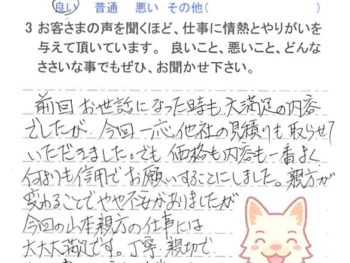 良い　普通　悪い　その他(　　　)
3 お客さまの声を聞くほど、仕事に情熱とやりがいを
与えて頂いています。 良いこと、悪いこと、どんな
ささいな事でもぜひ、お聞かせ下さい。
前回お世話になった時も大満足の内容
でしたが、今回一応他社の見積りも取らせて
いただきました。でも、価格も内容も一番よく
何よりも信用でお願いすることにしました。親方が
変わることでやや不安がありましたが
今回の山本親方の仕事には
大大大満足です。丁寧、親切で